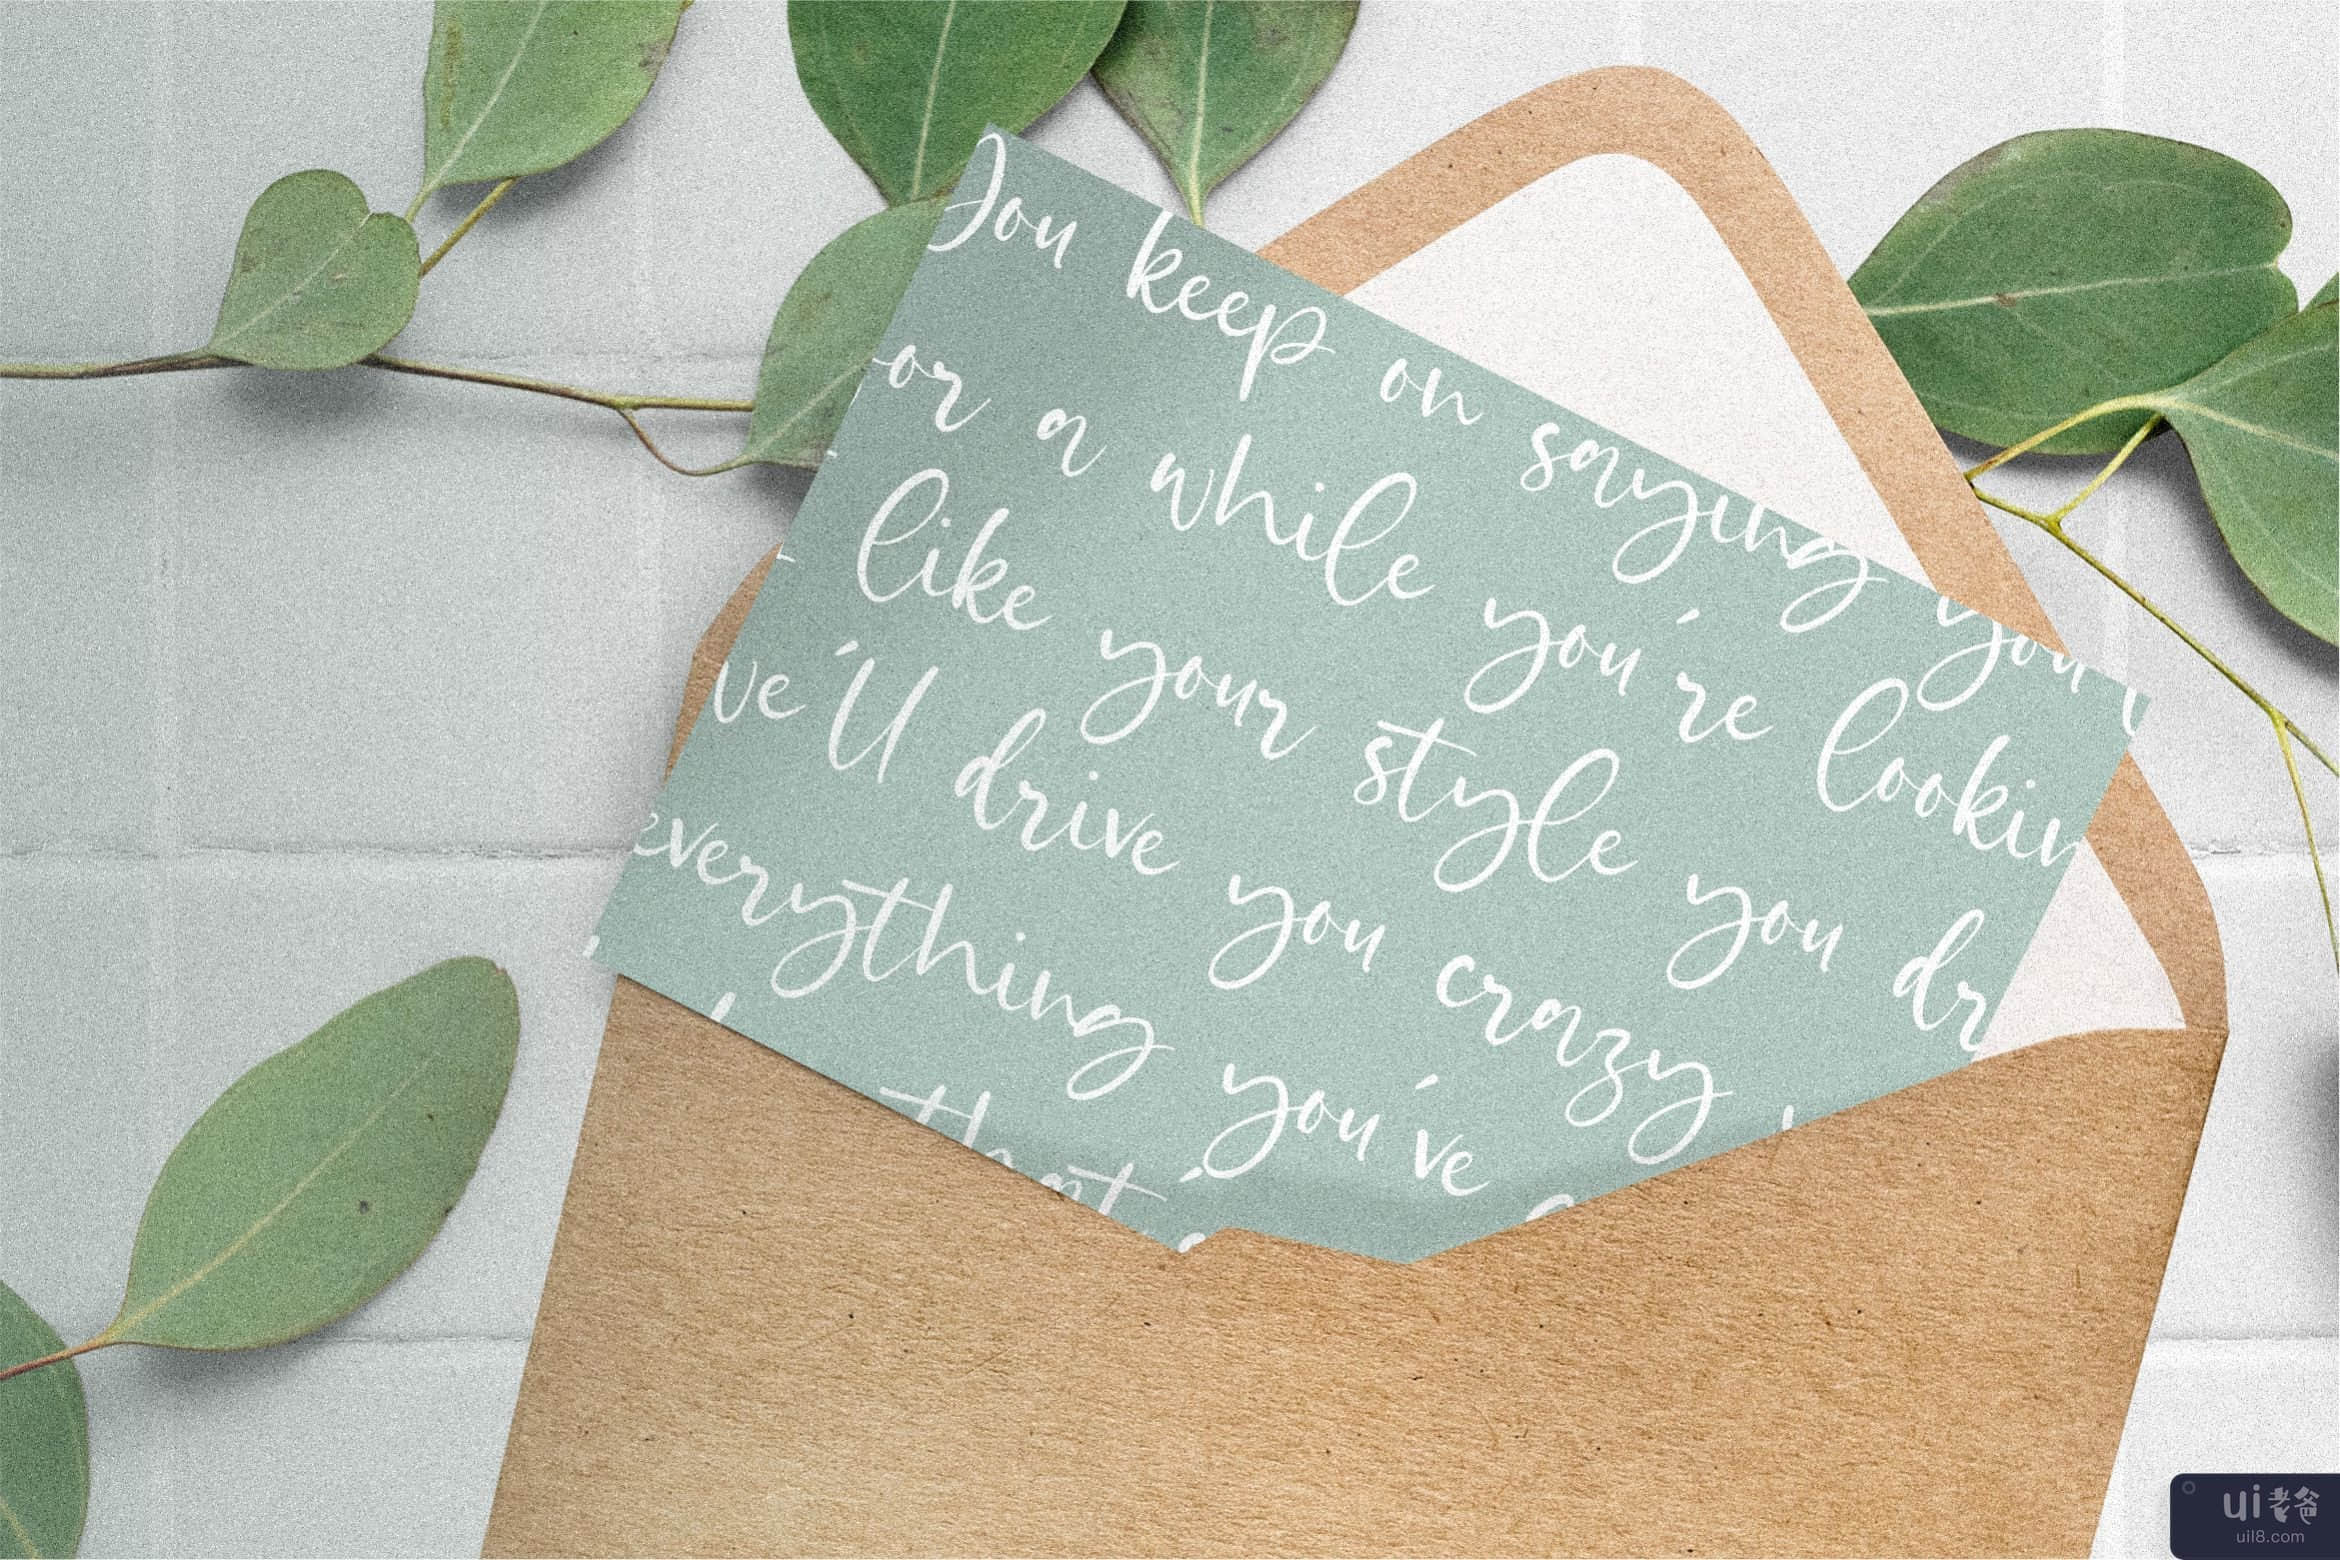 You keep on saying you
or a while you're lookin
like your style you dr
we'll drive you crazy
everything you've
that
ui老爸
uil8.com